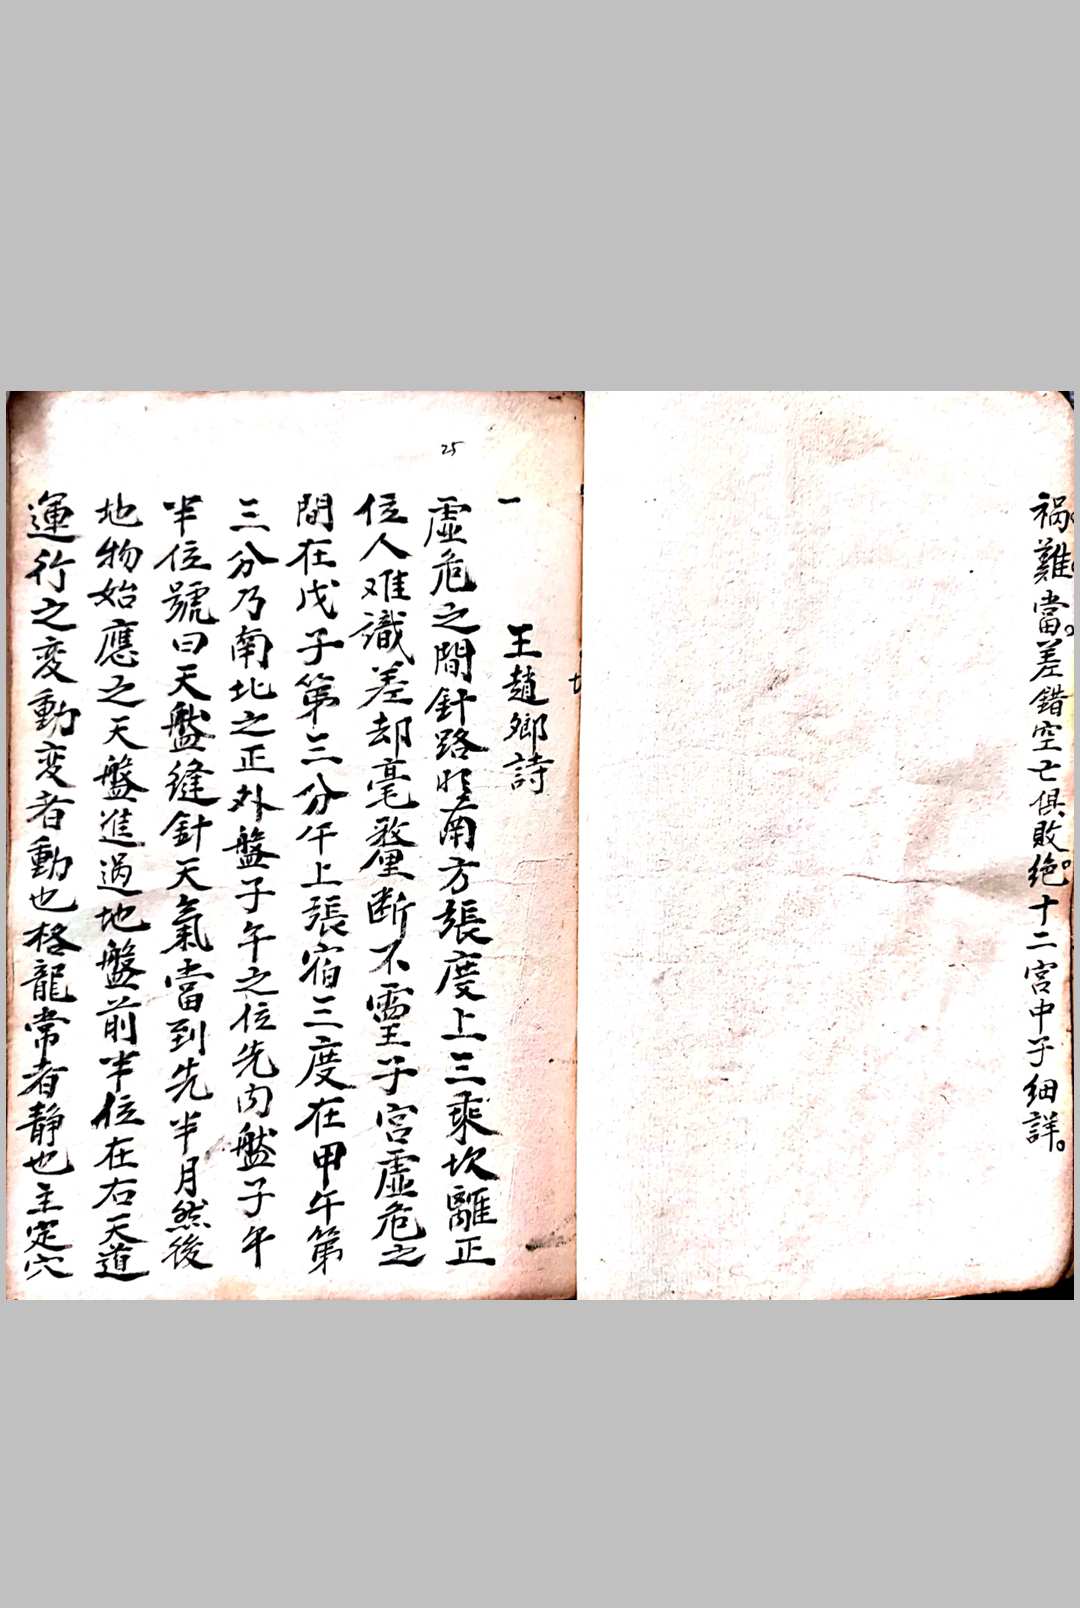 禍難當差錯空亡俱敗绝十二宮中子细詳
25
一
王趙鄉詩
虛危之間針路明南方張度上三乘坎離正
位人难識差却毫釐断不靈子宫虛危之
間在戊子第三分午上張宿三度在甲午第
三分乃南北之正外盤子午之位先内盤子午
半位號曰天盤縫針天氣當到先半月然後
地物始應之天盤進過地盤前半位在右天道
運行之变動变者動也格龍常者静也主定穴